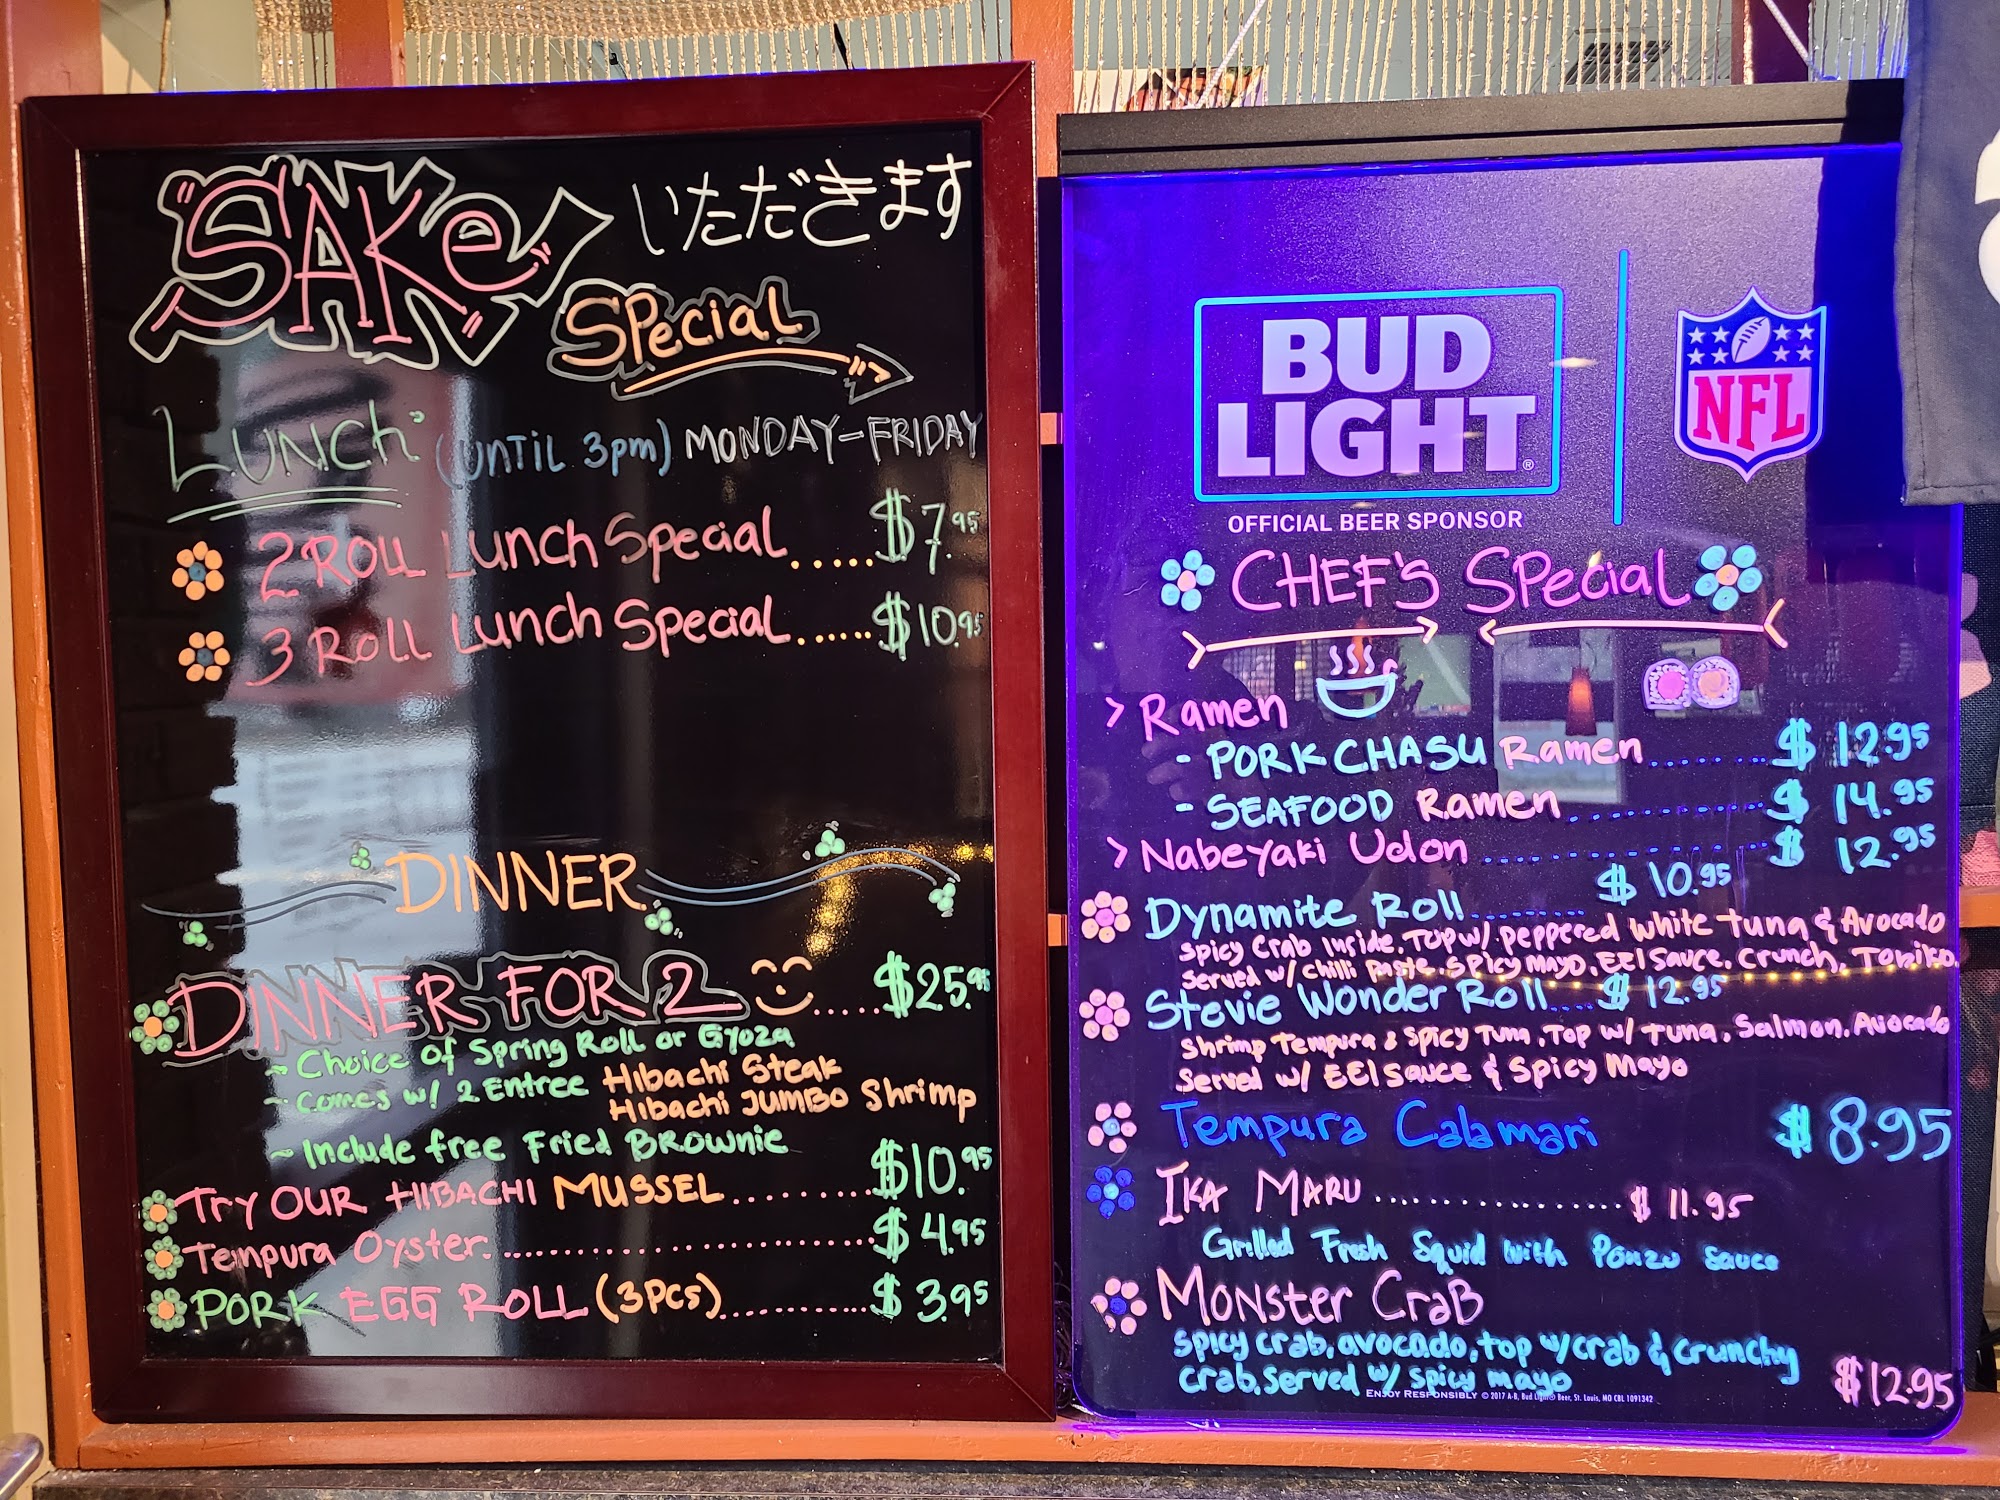 SAKe いただきます
Special
Lunch (until 3pm) MONDAY-FRIDAY
2 Roll Lunch Special.....$7.95
3 Roll Lunch Special......$10.95
DINNER
DINNER FOR 2 .....$25.95
~ Choice of Spring Roll or Gyoza
~ Comes w/ 2 Entree Hibachi Steak
Hibachi JUMBO Shrimp
~ Include free Fried BROWNIE
Try OUR HIBACHI MUSSEL.........$10.95
Tempura Oyster.....................$4.95
PORK EGG ROLL (3pcs)............$3.95
BUD LIGHT®
OFFICIAL BEER SPONSOR
NFL
CHEF'S Special
> Ramen
- PORK CHASU Ramen.........$12.95
- SEAFOOD Ramen............$14.95
> Nabeyaki Udon.................$12.95
Dynamite Roll.........$10.95
Spicy Crab Inside, TOP w/ peppered White Tuna & Avocado
Served w/ Chilli Paste, Spicy MAYO, EEl Sauce, Crunch, Tobiko.
Stevie Wonder Roll....$12.95
Shrimp Tempura & Spicy Tuna, Top w/ Tuna, Salmon, Avocado
Served w/ EEl Sauce & Spicy Mayo
Tempura Calamari $8.95
IKA MARU....................$11.95
Grilled Fresh Squid with Ponzu Sauce
Monster Crab
Spicy crab, avocado, top w/ crab & crunchy
crab, served w/ spicy mayo $12.95
ENJOY RESPONSIBLY © 2017 A-B, Bud Light® Beer, St. Louis, MO CBL 1091342